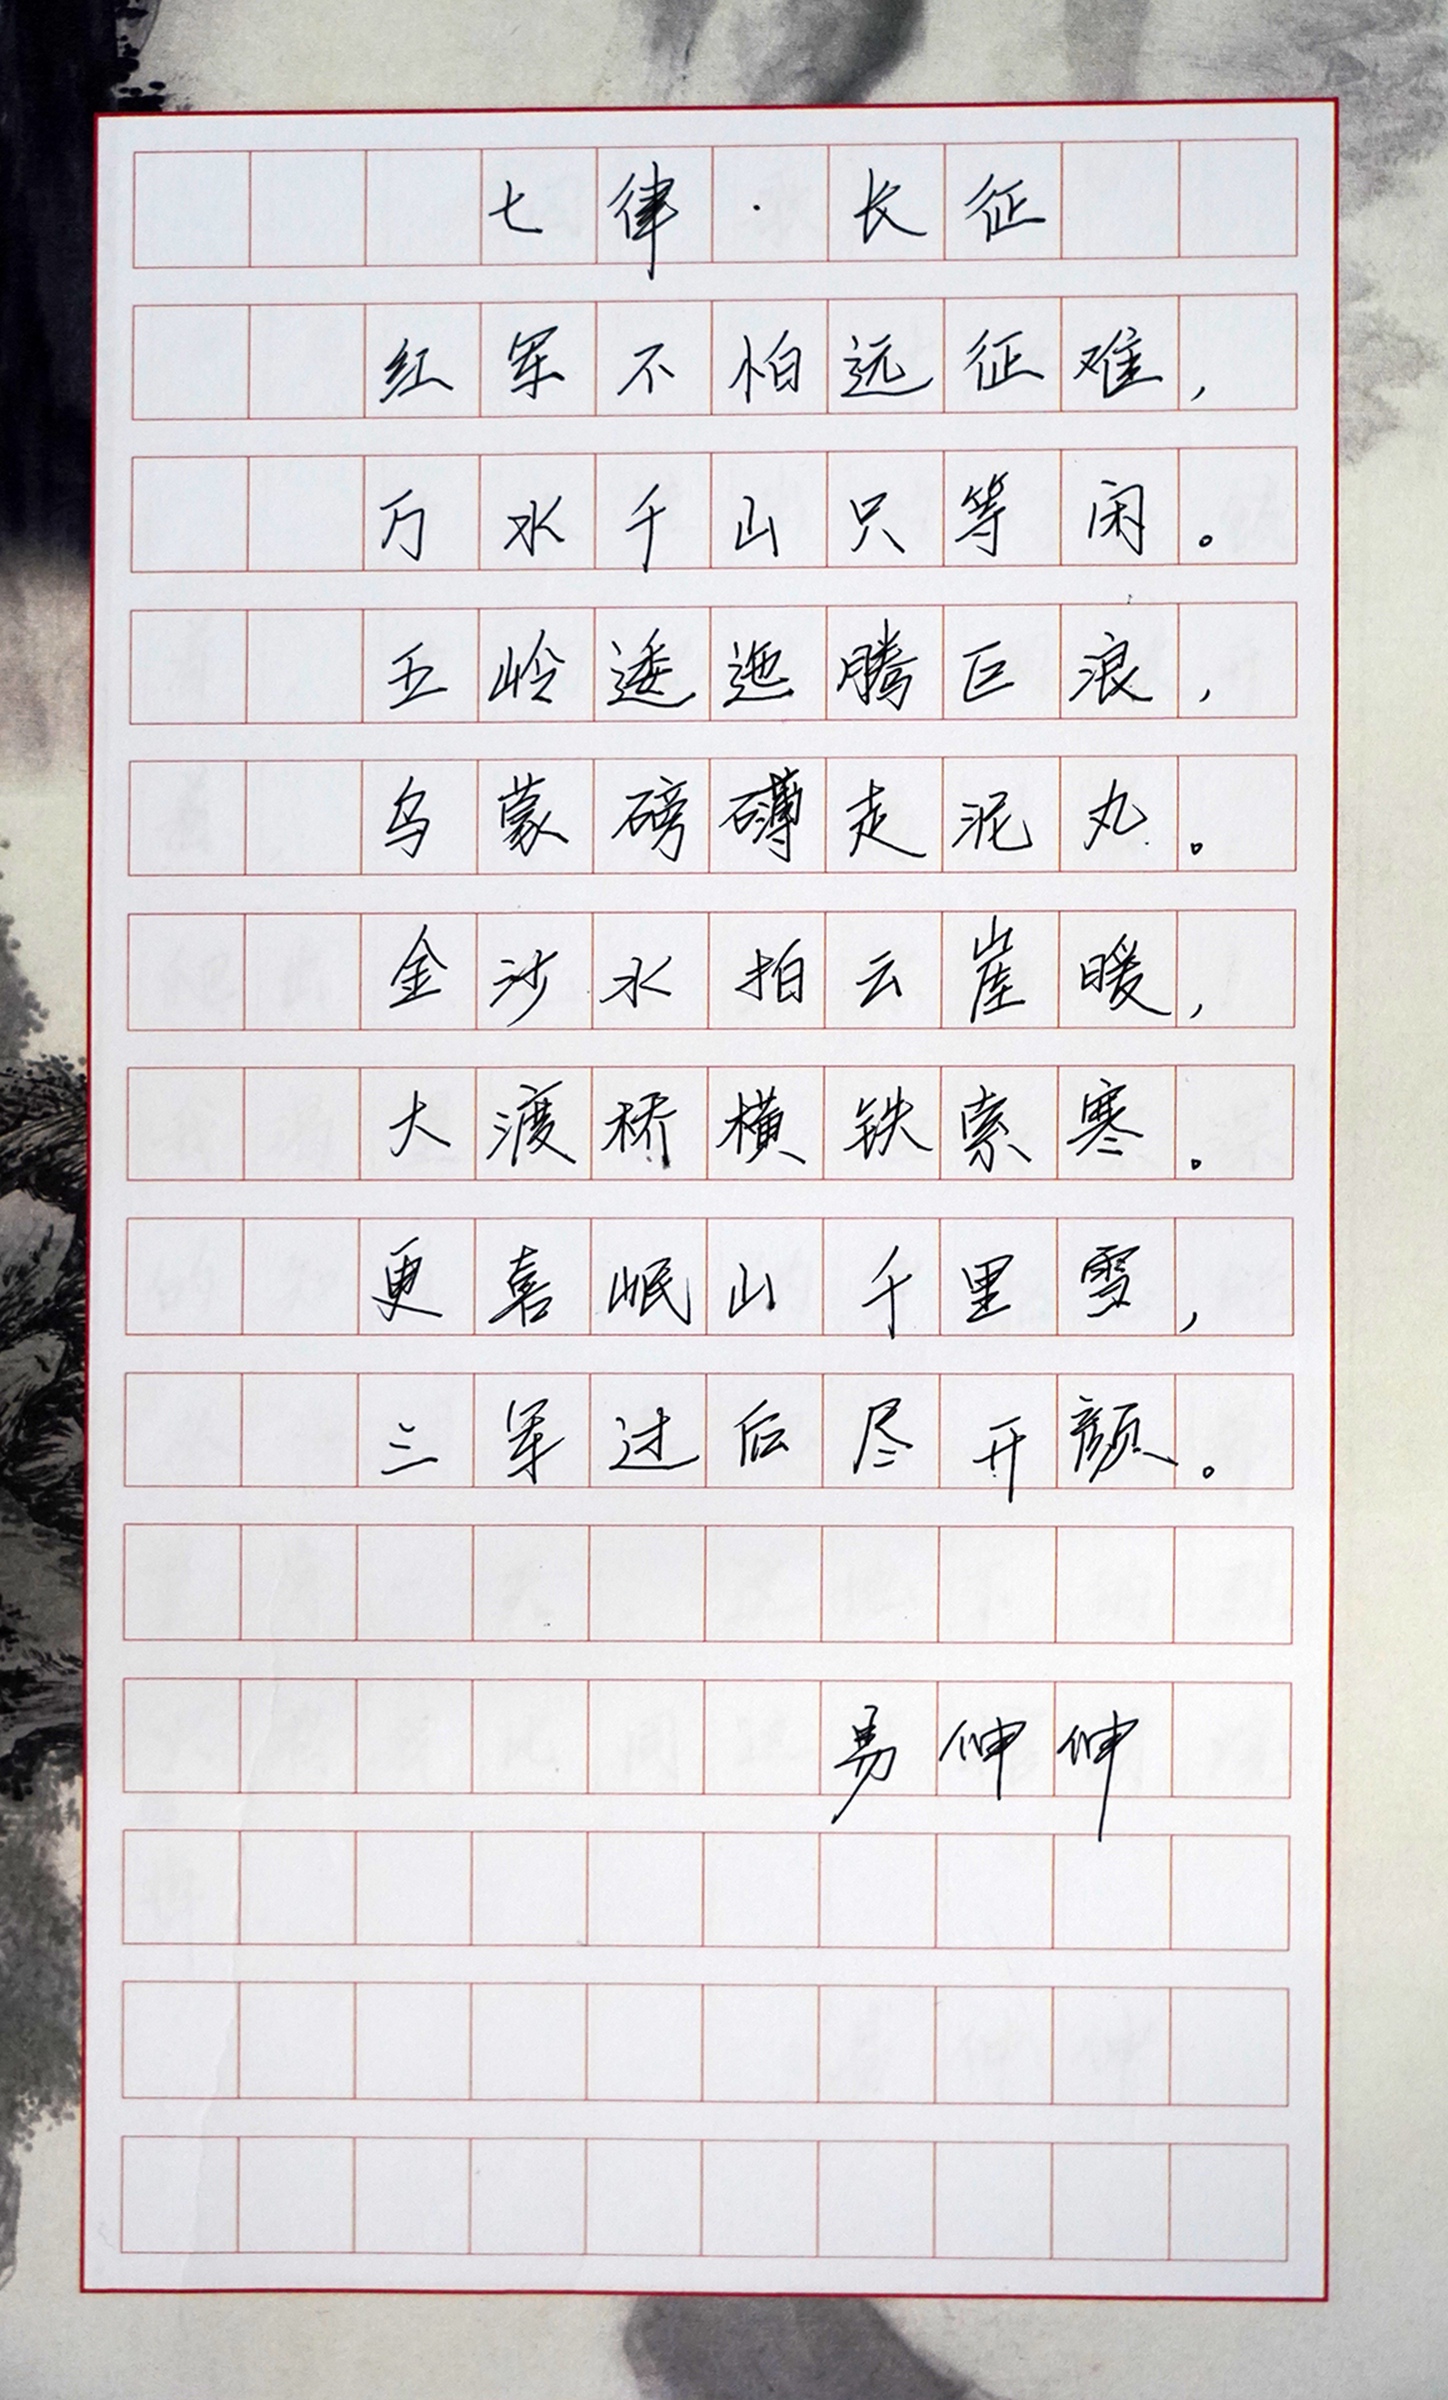 七律·长征
红军不怕远征难，
万水千山只等闲。
五岭逶迤腾巨浪，
乌蒙磅礴走泥丸。
金沙水拍云崖暖，
大渡桥横铁索寒。
更喜岷山千里雪，
三军过后尽开颜。
易伸伸